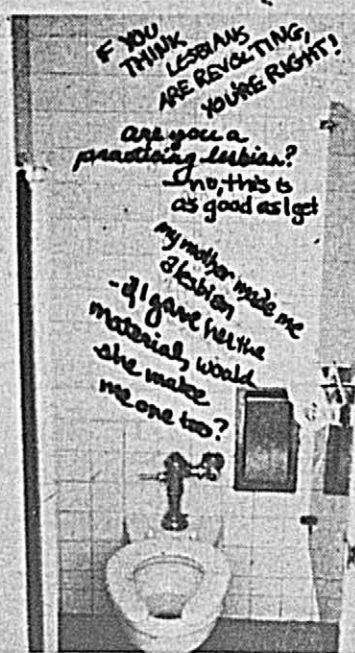 IF YOU
THINK
LESBIANS
ARE REVOLTING,
YOU'RE RIGHT!
are you a
practicing lesbian?
—no, this is
as good as I get
my mother made me
a lesbian
- if I gave her the
material, would
she make
me one too?